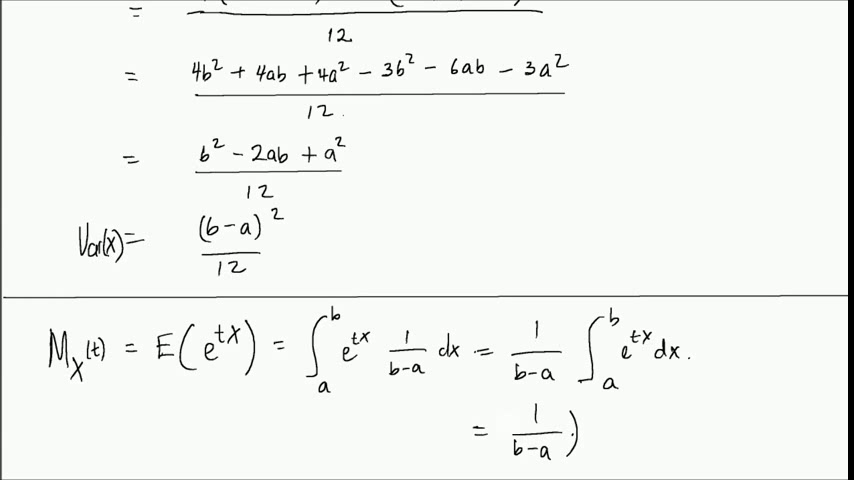 =
12
= 4b² + 4ab + 4a² - 3b² - 6ab - 3a²
12
= b² - 2ab + a²
12
Var(x) = (b-a)²
12
M_X(t) = E(e^{tX}) = ∫_a^b e^{tx} 1/(b-a) dx = 1/(b-a) ∫_a^b e^{tx} dx.
= 1/(b-a) )